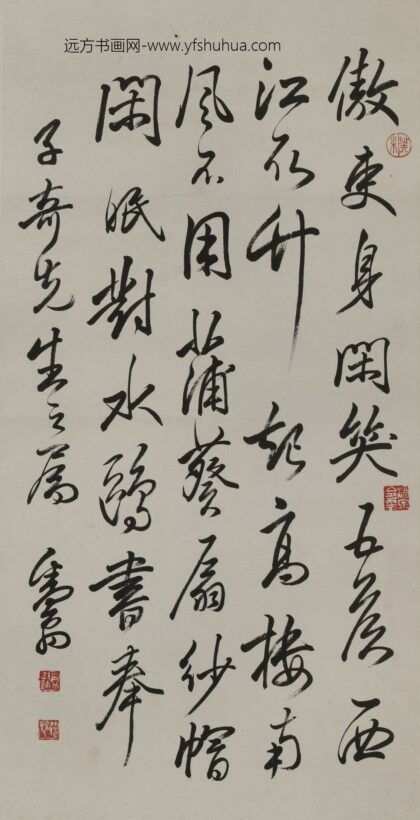 远方书画网-www.yfshuhua.com
傲吏身閑笑五侯西
江取竹起高樓南
風不用蒲葵扇紗帽
閑眠對水鷗書奉
子奇先生之屬